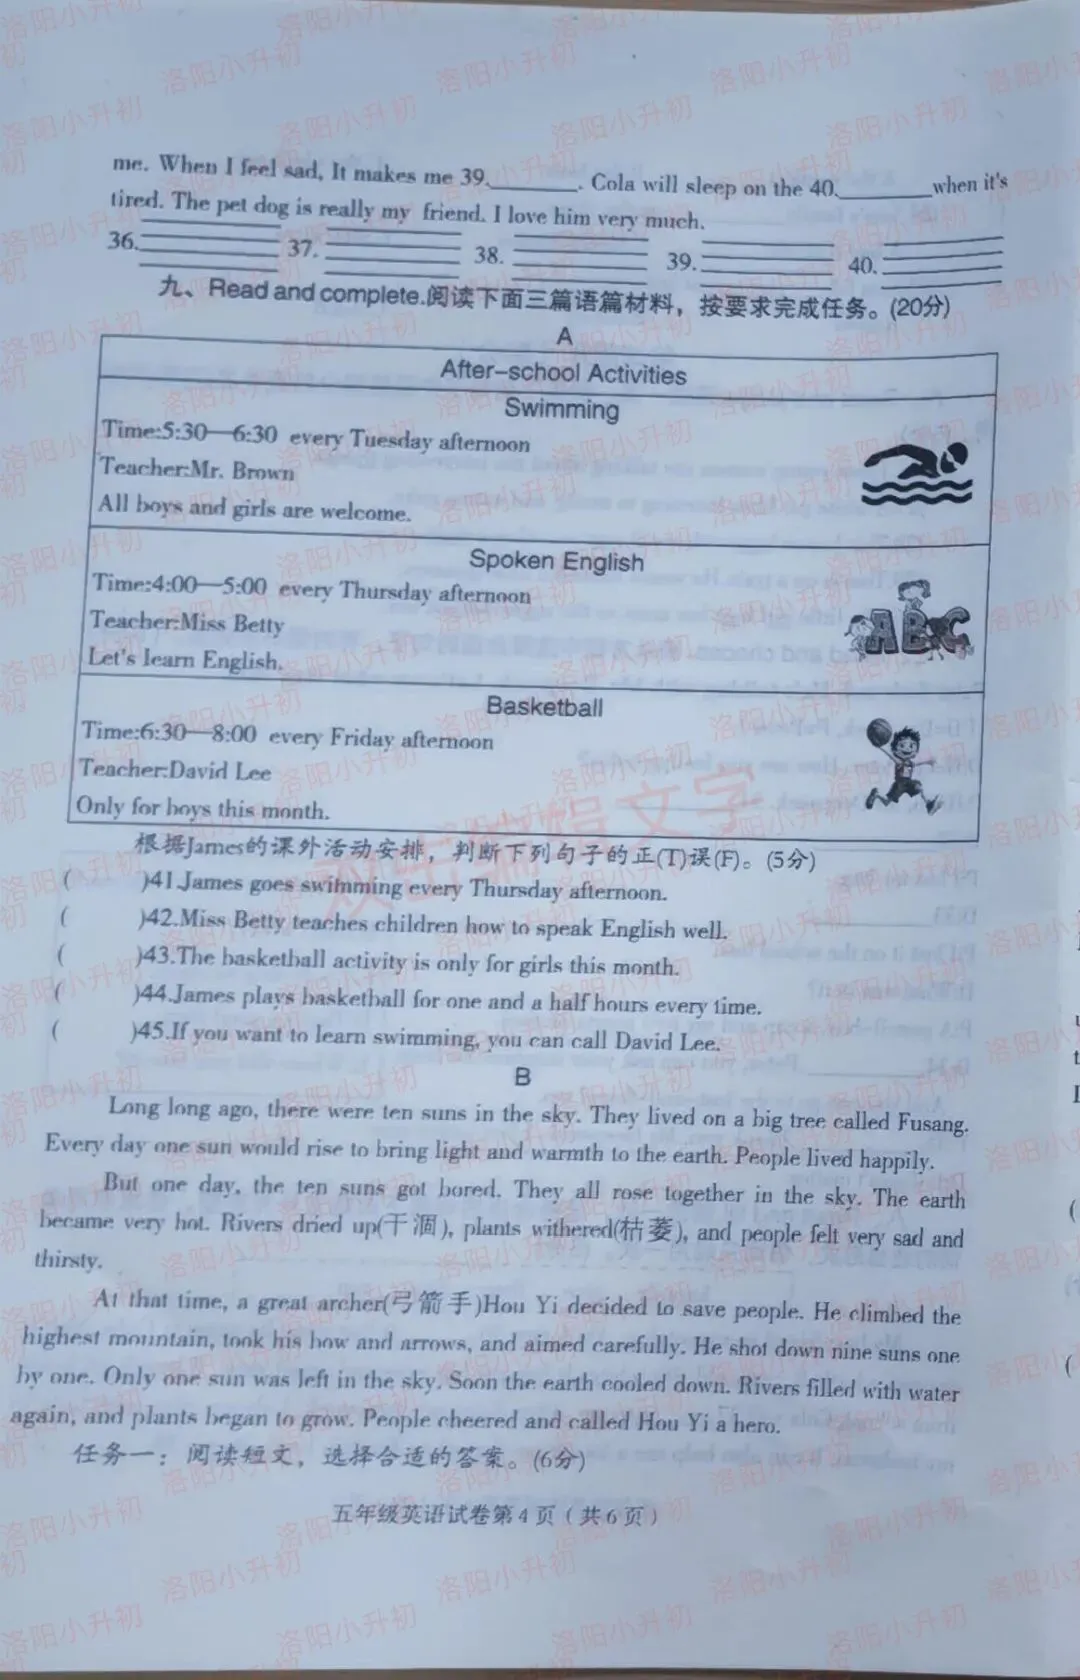 me. When I feel sad, It makes me 39.________. Cola will sleep on the 40.________when it's
tired. The pet dog is really my friend. I love him very much.
36. 37. 38. 39. 40.
九、Read and complete.阅读下面三篇语篇材料，按要求完成任务。(20分)
A
After-school Activities
Swimming
Time:5:30—6:30 every Tuesday afternoon
Teacher:Mr. Brown
All boys and girls are welcome.
Spoken English
Time:4:00—5:00 every Thursday afternoon
Teacher:Miss Betty
Let's learn English.
ABC
Basketball
Time:6:30—8:00 every Friday afternoon
Teacher:David Lee
Only for boys this month.
根据James的课外活动安排，判断下列句子的正(T)误(F)。(5分)
( )41.James goes swimming every Thursday afternoon.
( )42.Miss Betty teaches children how to speak English well.
( )43.The basketball activity is only for girls this month.
( )44.James plays basketball for one and a half hours every time.
( )45.If you want to learn swimming, you can call David Lee.
B
Long long ago, there were ten suns in the sky. They lived on a big tree called Fusang.
Every day one sun would rise to bring light and warmth to the earth. People lived happily.
But one day, the ten suns got bored. They all rose together in the sky. The earth
became very hot. Rivers dried up(干涸), plants withered(枯萎), and people felt very sad and
thirsty.
At that time, a great archer(弓箭手)Hou Yi decided to save people. He climbed the
highest mountain, took his bow and arrows, and aimed carefully. He shot down nine suns one
by one. Only one sun was left in the sky. Soon the earth cooled down. Rivers filled with water
again, and plants began to grow. People cheered and called Hou Yi a hero.
任务一：阅读短文，选择合适的答案。(6分)
五年级英语试卷第4页（共6页）
洛阳小升初